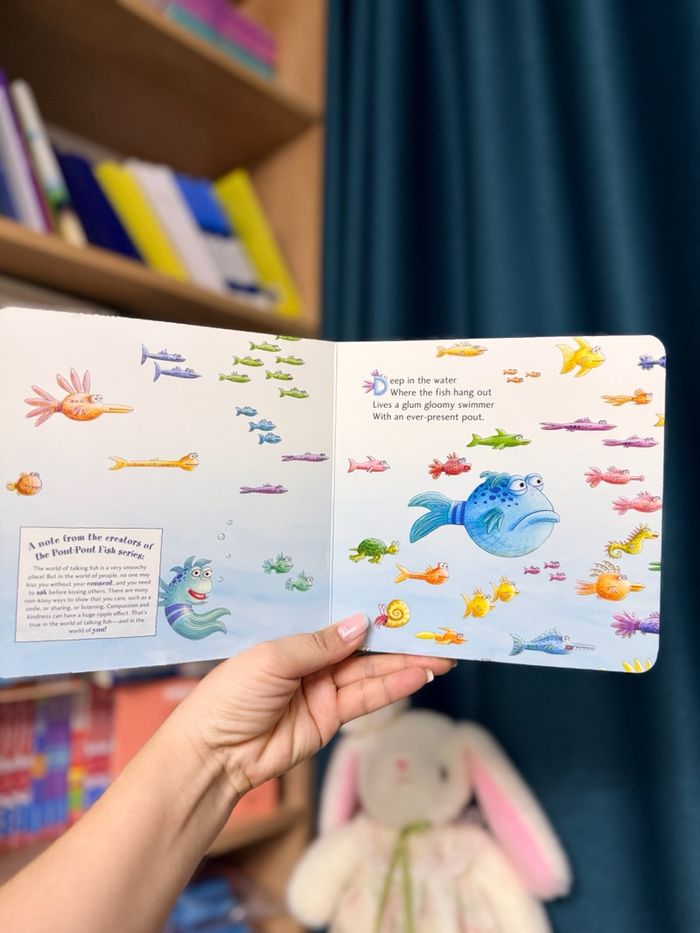 A note from the creators of
the Pout-Pout Fish series:
The world of talking fish is a very smoochy
place! But in the world of people, no one may
kiss you without your consent, and you need
to ask before kissing others. There are many
non-kissy ways to show that you care, such as a
smile, or sharing, or listening. Compassion and
kindness can have a huge ripple effect. That's
true in the world of talking fish—and in the
world of you!
Deep in the water
Where the fish hang out
Lives a glum gloomy swimmer
With an ever-present pout.